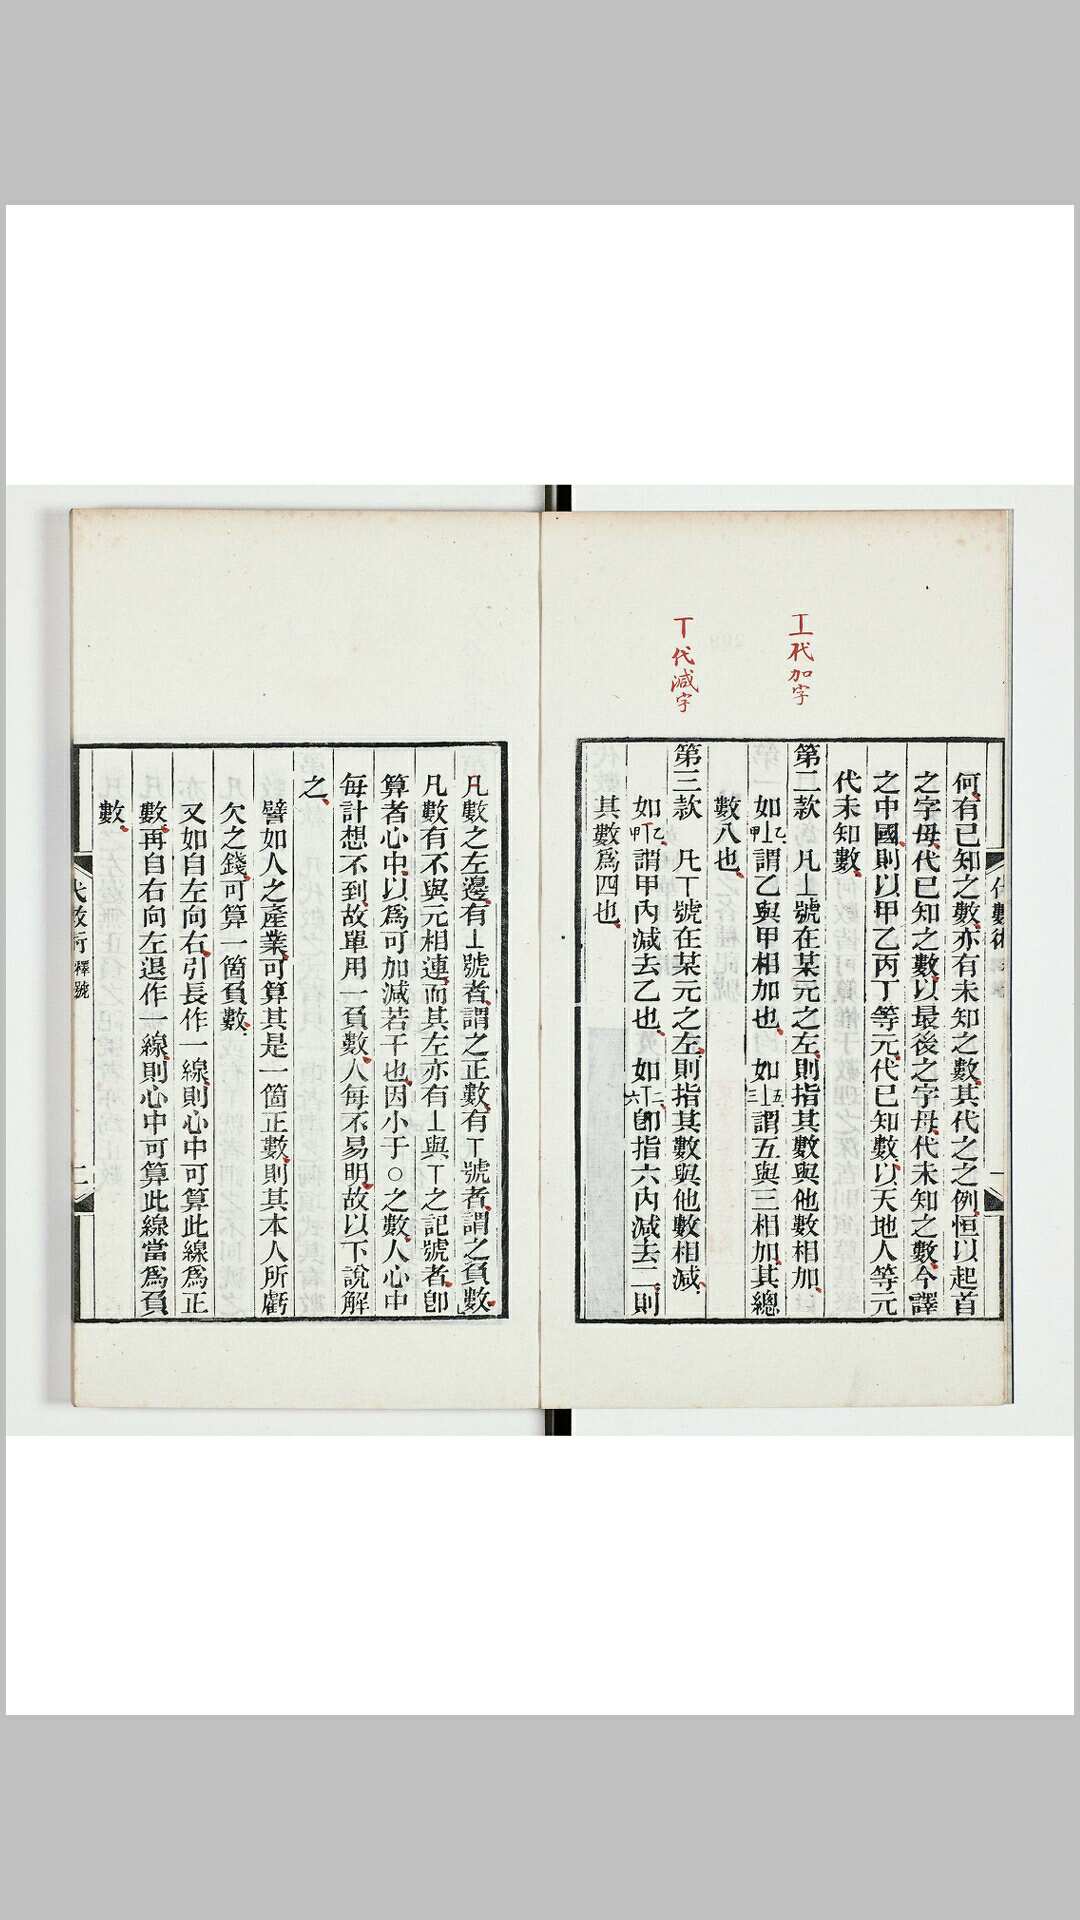 ⊥代加字
丅代減字
何有已知之數亦有未知之數其代之之例恒以起首
之字母代已知之數以最後之字母代未知之數今譯
之中國則以甲乙丙丁等元代已知數以天地人等元
代未知數
第二款 凡⊥號在某元之左則指其數與他數相加
如甲⊥乙謂乙與甲相加也 如三⊥五謂五與三相加其總
數八也
第三款 凡丅號在某元之左則指其數與他數相減
如甲丅乙謂甲內減去乙也 如六丅二卽指六內減去二則
其數爲四也
代數術
凡數之左邊有⊥號者謂之正數有丅號者謂之負數
凡數有不與元相連而其左亦有⊥與丅之記號者卽
算者心中以爲可加減若干也因小于○之數人心中
每計想不到故單用一負數人每不易明故以下說解
之
譬如人之產業可算其是一箇正數則其本人所虧
欠之錢可算一箇負數
又如自左向右引長作一線則心中可算此線爲正
數再自右向左退作一線則心中可算此線當爲負
數
代數術 釋號 二